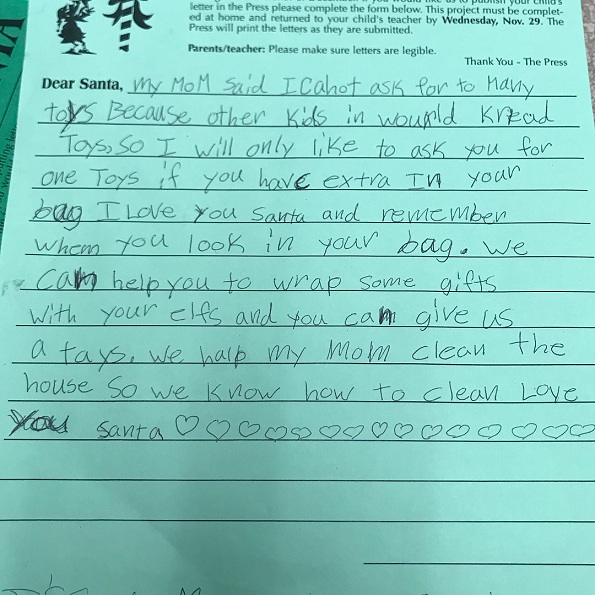 letter in the Press please complete the form below. This project must be complet-
ed at home and returned to your child's teacher by Wednesday, Nov. 29. The
Press will print the letters as they are submitted.
Parents/teacher: Please make sure letters are legible.
Thank You - The Press
Dear Santa, my MoM Said I Cahot ask for to Many
toys Because other Kids in would Knead
Toys, So I will only like to ask you for
one Toys if you have extra In your
bag I Love you Santa and remember
whem you look in your bag. we
can help you to wrap some gifts
with your elfs and you can give us
a tays. we halp my Mom clean the
house So we know how to clean Love
You Santa ♡♡♡♡♡♡♡♡♡♡♡♡♡♡